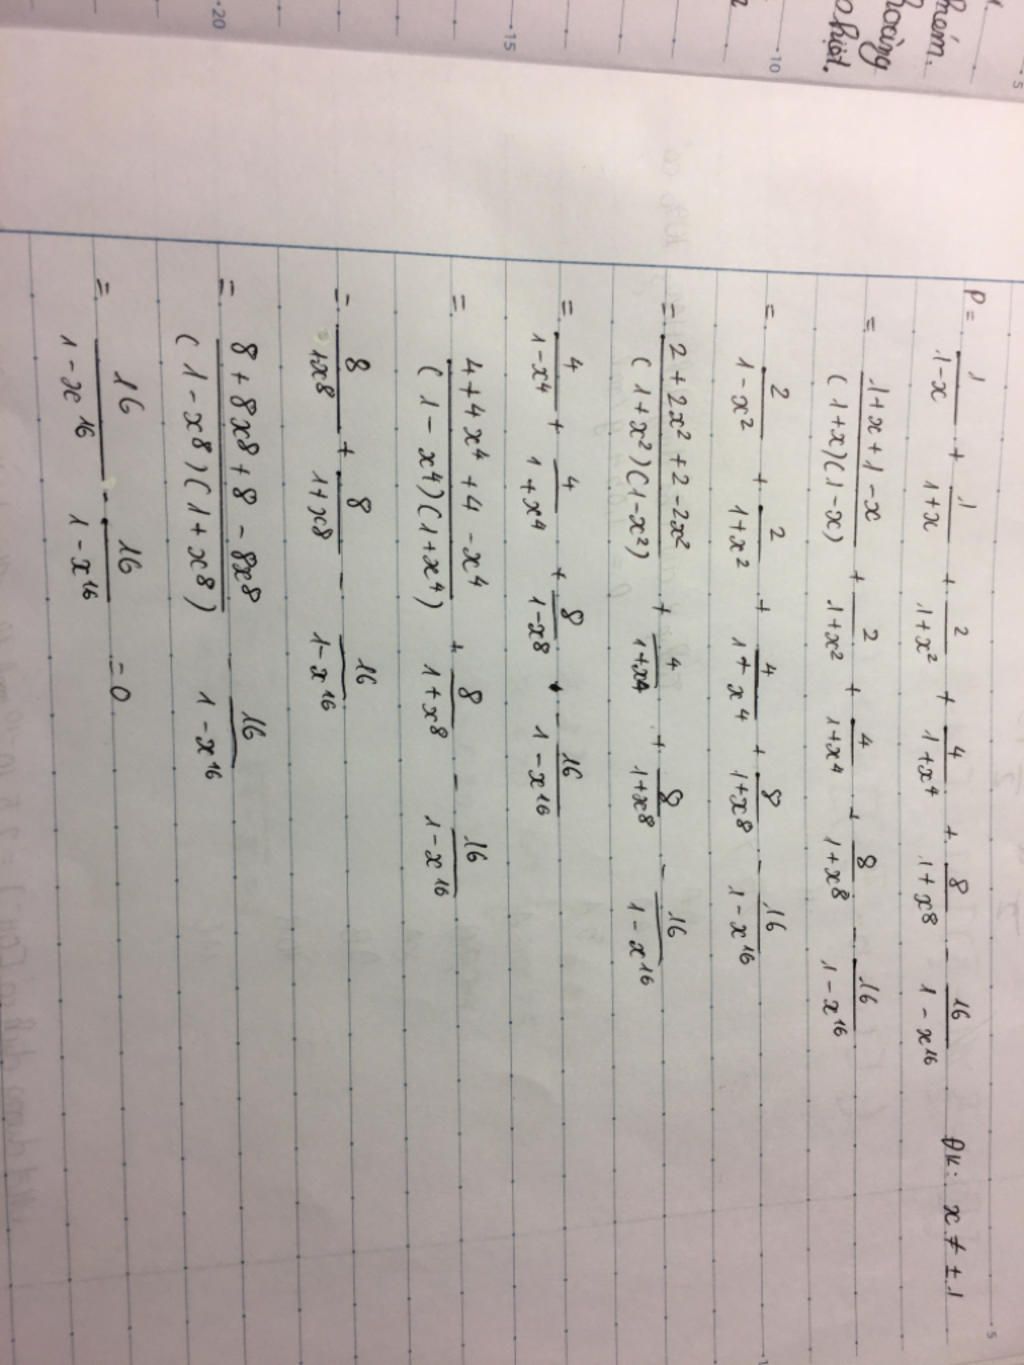 hém.
hoàng
nhiệt.
5
10
15
20
P = 1/(1-x) + 1/(1+x) + 2/(1+x²) + 4/(1+x⁴) + 8/(1+x⁸) - 16/(1-x¹⁶) ĐK: x ≠ ±1
= (1+x+1-x)/((1+x)(1-x)) + 2/(1+x²) + 4/(1+x⁴) + 8/(1+x⁸) - 16/(1-x¹⁶)
= 2/(1-x²) + 2/(1+x²) + 4/(1+x⁴) + 8/(1+x⁸) - 16/(1-x¹⁶)
= (2+2x²+2-2x²)/((1+x²)(1-x²)) + 4/(1+x⁴) + 8/(1+x⁸) - 16/(1-x¹⁶)
= 4/(1-x⁴) + 4/(1+x⁴) + 8/(1-x⁸) - 16/(1-x¹⁶)
= (4+4x⁴+4-x⁴)/((1-x⁴)(1+x⁴)) + 8/(1+x⁸) - 16/(1-x¹⁶)
= 8/(1-x⁸) + 8/(1+x⁸) - 16/(1-x¹⁶)
= (8+8x⁸+8-8x⁸)/((1-x⁸)(1+x⁸)) - 16/(1-x¹⁶)
= 16/(1-x¹⁶) - 16/(1-x¹⁶) = 0
5